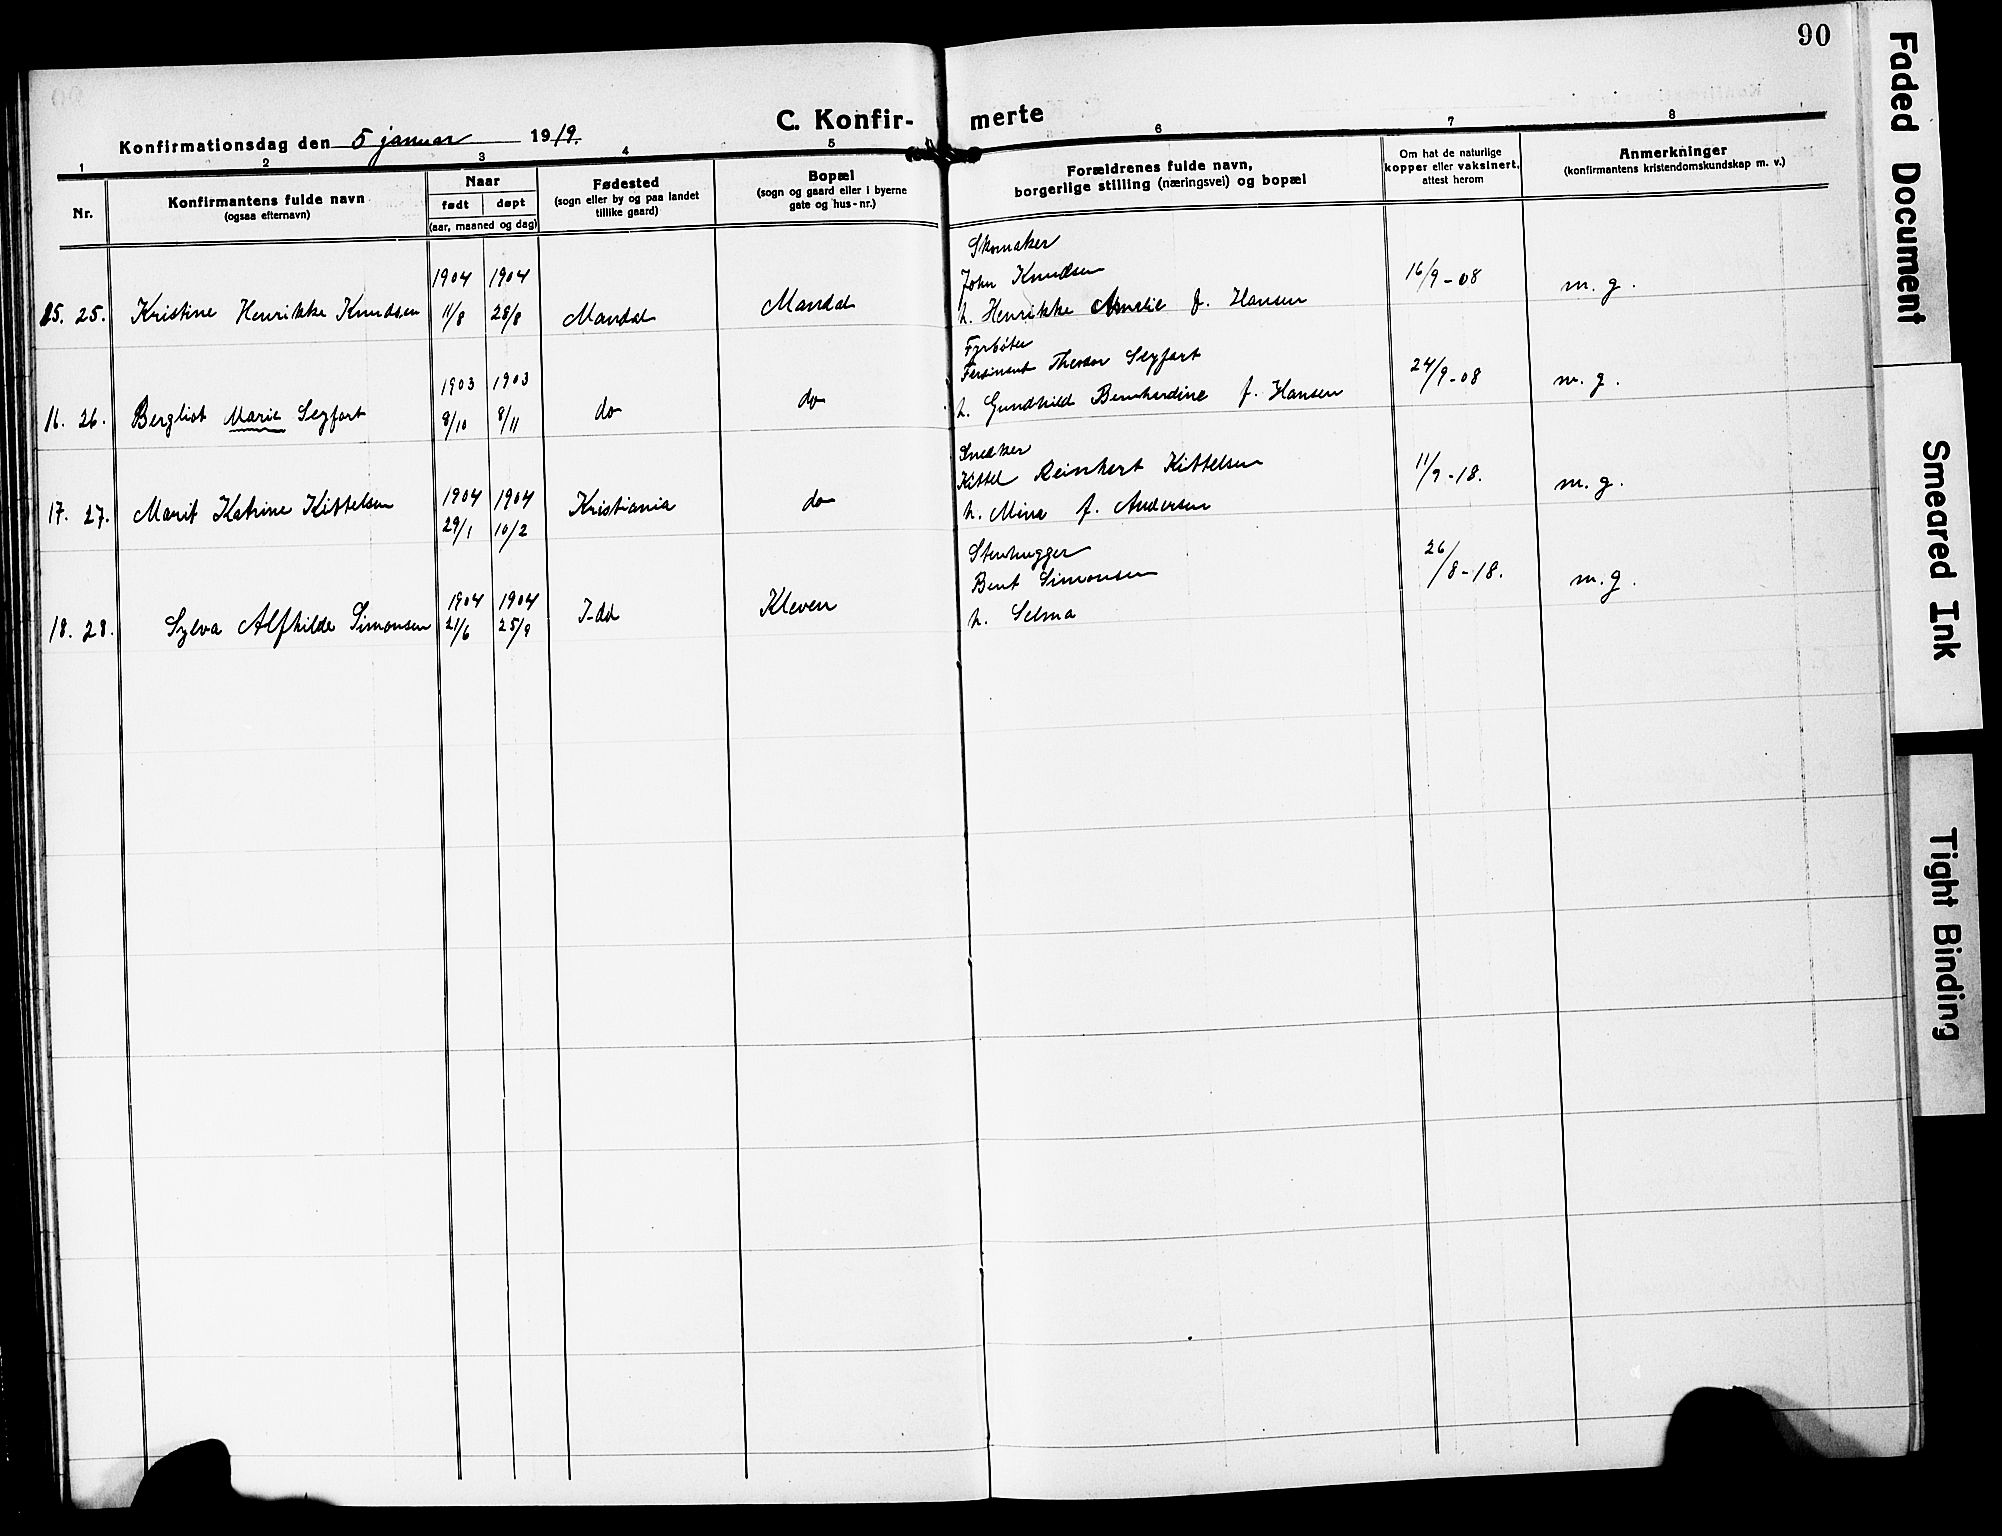 90
C. Konfirmerte
Konfirmationsdag den 5 januar 1919.
1 2 3 4 5 6 7 8
Nr.
Konfirmantens fulde navn
(ogsaa efternavn)
Naar
født døpt
(aar, maaned og dag)
Fødested
(sogn eller by og paa landet
tillike gaard)
Bopæl
(sogn og gaard eller i byerne
gate og hus-nr.)
Forældrenes fulde navn,
borgerlige stilling (næringsvei) og bopæl
Om hat de naturlige
kopper eller vaksinert,
attest herom
Anmerkninger
(konfirmantens kristendomskundskap m. v.)
Skomaker
1904 1904 John Knudsen 16/9-08
15. 25. Kristine Henrikke Knudsen 11/8 28/8 Mandal Mandal h. Henrikke Amalie f. Hansen m. g.
Fyrbøter
1903 1903 Ferdinant Theodor Seyfart 24/9-08
16. 26. Bergliot Marie Seyfart 9/10 8/11 do do h. Gundhild Bernhardine f. Hansen m. g.
Snedker
1904 1904 Kittel Reinhert Kittelsen 11/9-18.
17. 27. Marit Katrine Kittelsen 29/1 10/2 Kristiania do h. Mina f. Andersen m. g.
Stenhugger
1904 1904 Bent Simonsen 26/8-18.
18. 28. Sylva Alfhilde Simonsen 21/6 25/9 Idd Kleven h. Selma m. g.
Faded Document
Smeared Ink
Tight Binding